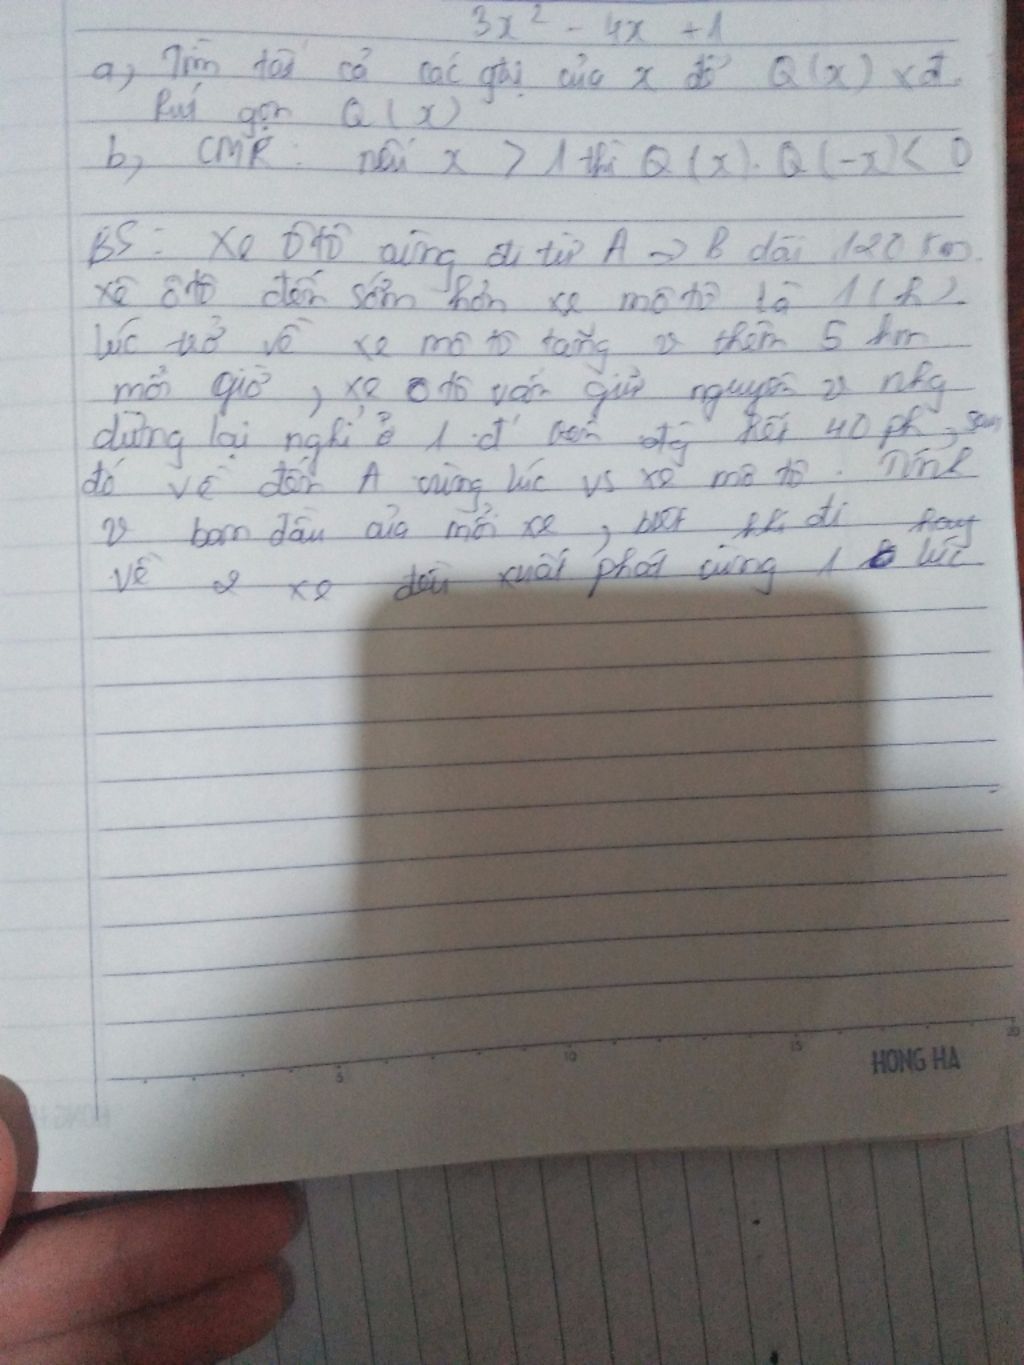 3x² - 4x + 1
a, Tìm tất cả các gtrị của x để Q(x) xđ.
Rút gọn Q(x)
b, CMR: nếu x > 1 thì Q(x). Q(-x) < 0
B5: Xe ô tô cùng đi từ A → B dài 120 km.
xe ô tô đến sớm hơn xe mô tô là 1(h).
lúc trở về xe mô tô tăng v thêm 5 km
mỗi giờ, xe ô tô vẫn giữ nguyên v nhg
dừng lại nghỉ ở 1 đ' trên đg hết 40 ph, sau
đó về đến A cùng lúc vs xe mô tô. Tính
v ban đầu của mỗi xe, biết khi đi hay
về 2 xe đều xuất phát cùng 1 lúc
5 10 15 20
HONG HA